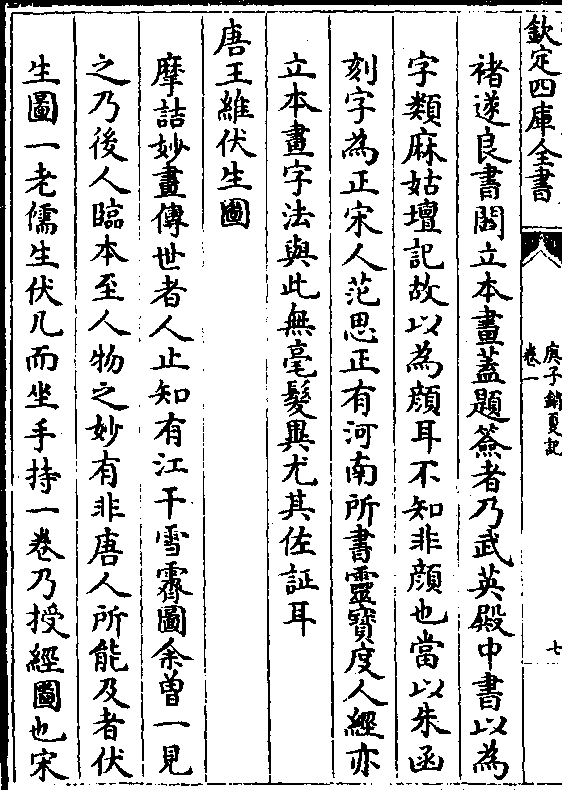 欽定四庫全書
庚子銷夏記
卷一
七
褚遂良書閻立本畫蓋題簽者乃武英殿中書以為
字類麻姑壇記故以為顔耳不知非顔也當以朱函
刻字為正宋人范思正有河南所書靈寶度人經亦
立本畫字法與此無毫髮異尤其佐証耳
唐王維伏生圖
摩詰妙畫傳世者人止知有江干雪霽圖余曽一見
之乃後人臨本至人物之妙有非唐人所能及者伏
生圖一老儒生伏几而坐手持一卷乃授經圖也宋